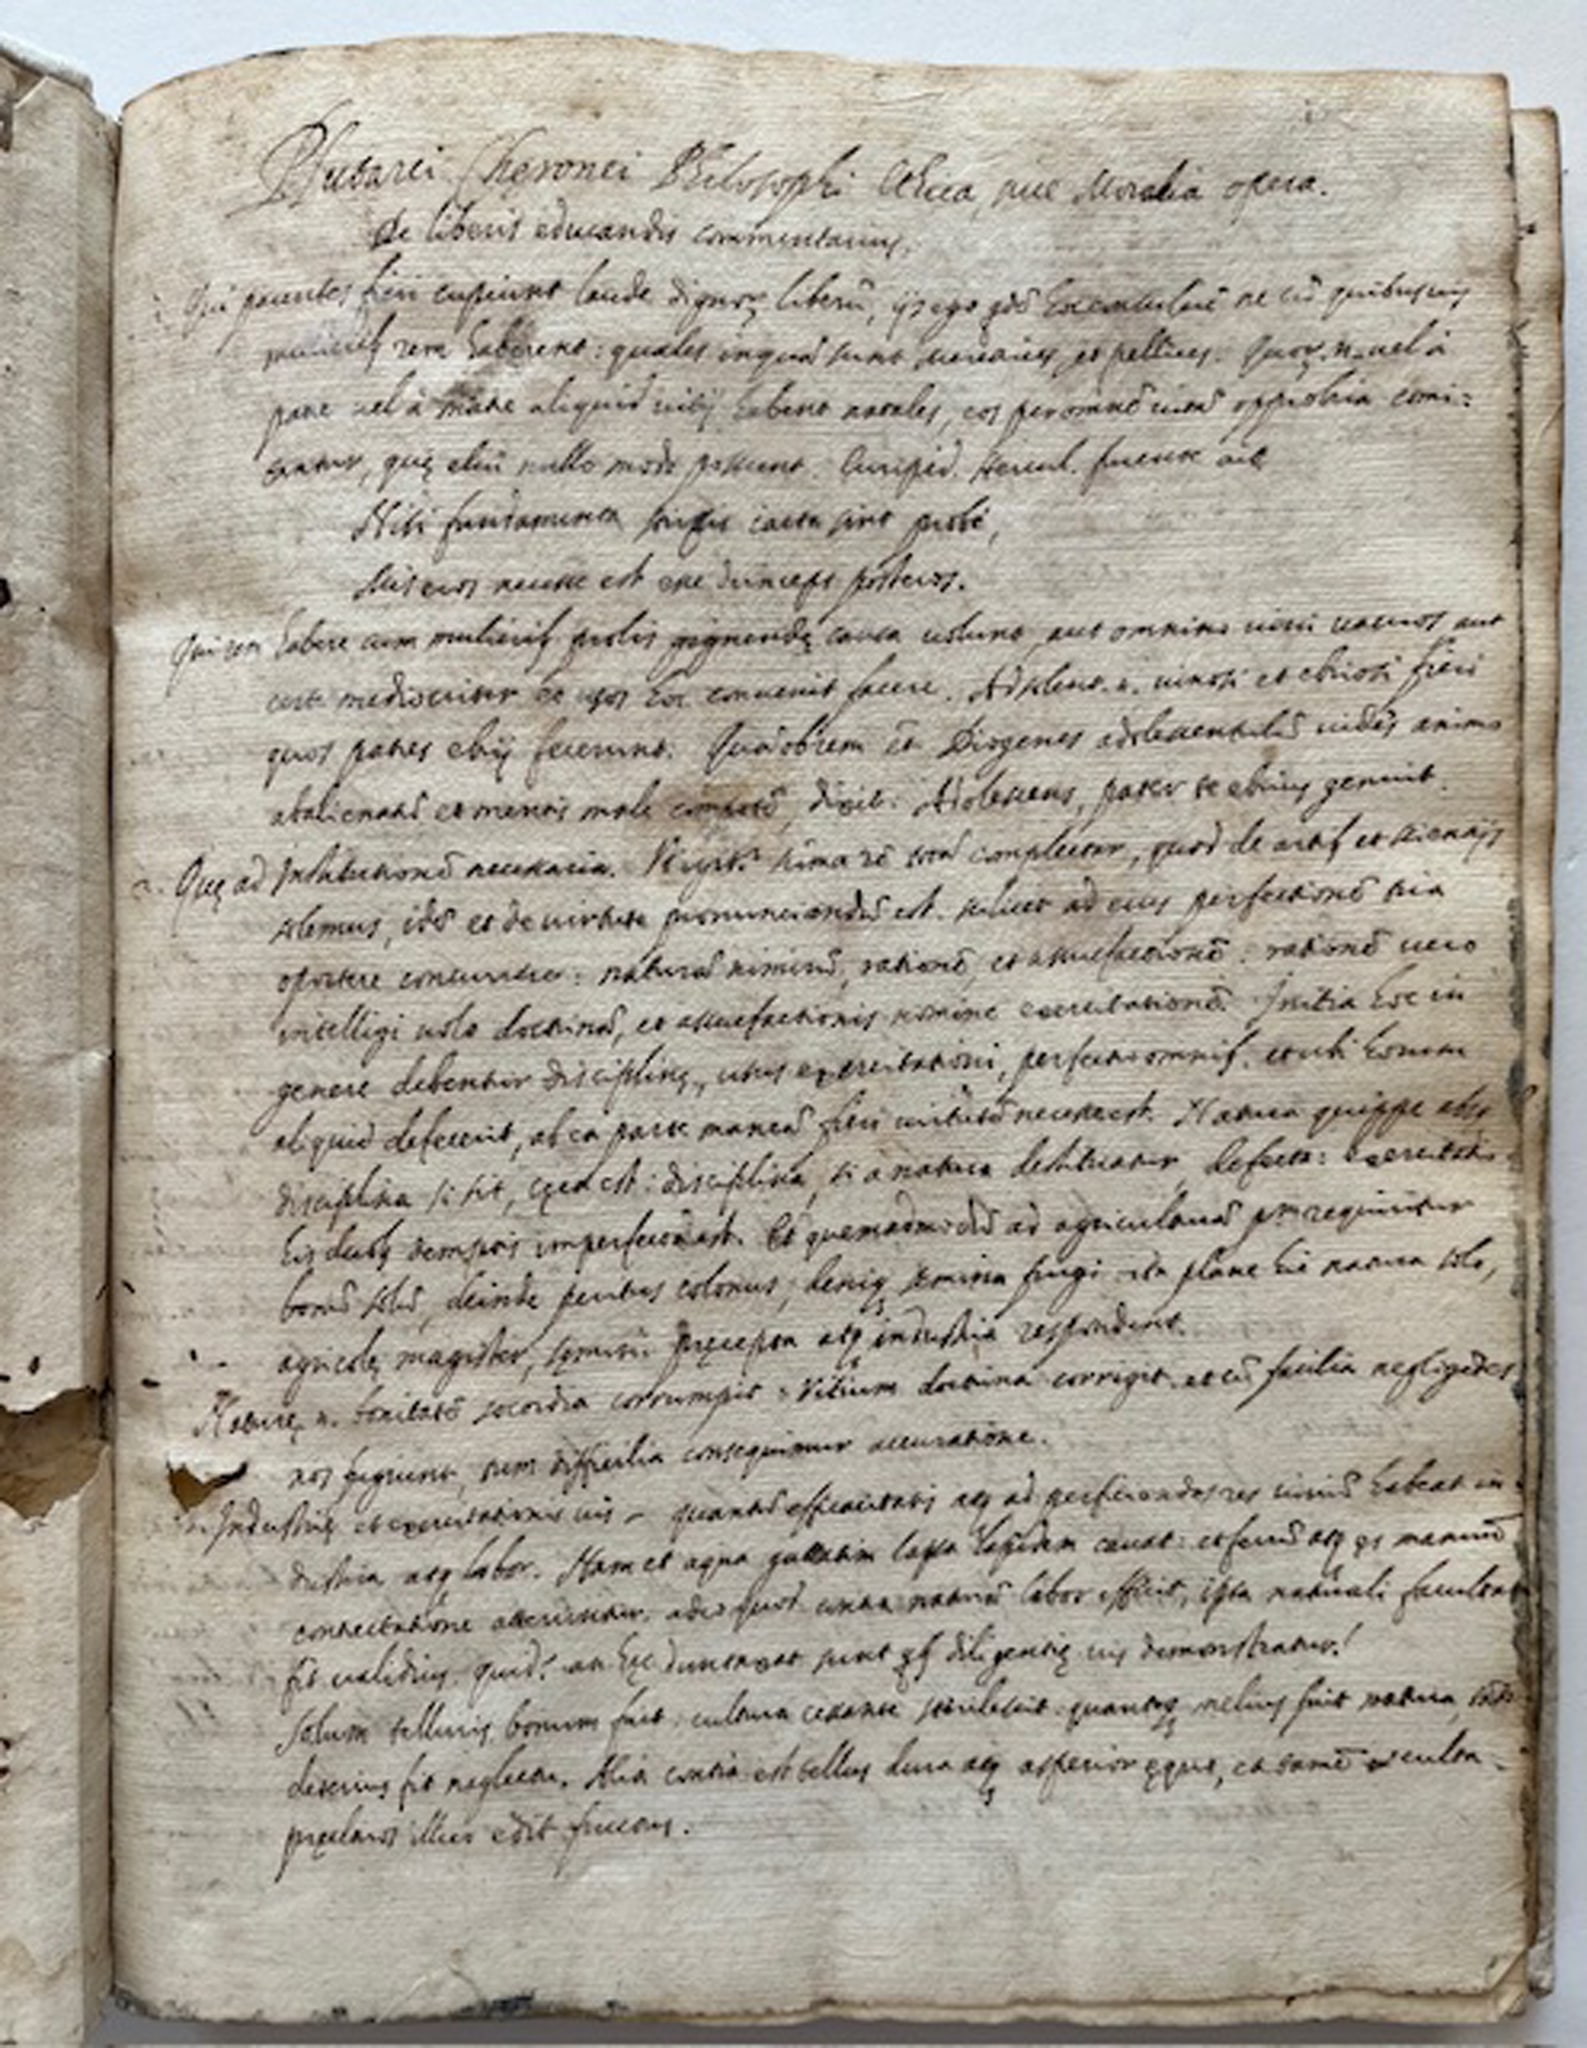 Plutarci Cheronei Philosophi Ethica, sive Moralia opera.
De liberis educandis commentarius.
1. Qui parentes fieri cupiunt laude dignoꝝ liberũ, ijs ego hortator ne cũ quibusvis
rem haberent: quales inquã sunt meretrices et pellices. Quoꝝ .n. vel à
patre vel à matre aliquid vitij habent natales, eos per omnẽ vitã opprobria comi-
tantur, quę elui nullo modo possunt. Euripid. Hercul. furente ait
Nisi fundamenta stirpis iacta sint probè,
Miseros necesse est esse deinceps posteros.
Qui rem habere cum mulierib. prolis gignendę causa volunt, aut omnino vini vacuos aut
certe mediocriter eo usos hoc convenit facere. Ad solent .n. vinosi et ebriosi fieri
quos patres ebrij fecerunt. Quãobrem et Diogenes adolescentulũ videns animo
abalienatũ et mentis male compotẽ, dixit: Adolescens, pater te ebrius genuit.
2. Quę ad Institutionẽ necessaria. totã complectar, quod de artib. et scientijs
solemus, idẽ et de virtute pronunciandũ est. scilicet ad eius perfectionẽ tria
oportere concurrere: naturã nimirũ, rationẽ, et assuefactionẽ: rationẽ vero
intelligi volo doctrinã, et assuefactionis nomine exercitationẽ. Initia hoc in
genere debentur disciplinę, usus exercitationi, perfectio omnib. et ubi horum
aliquid defecerit, ab ea parte mancã fieri virtutẽ necesse est. Natura quippe absq
disciplina si sit, cęca est: disciplina, si a natura destituatur, defecta: exercitatio
his duobꝰ demptis imperfecta est. Et quemadmodũ ad agriculturã pm̃ requiritur
bonũ solũ, deinde peritus colonus, deniq semina frugi ita plane hic natura solo,
agricolę magister, seminũ pręcepta atq industria respondent.
Naturę .n. bonitatẽ socordia corrumpit: Vitium doctrina corrigit. et cũ facilia negligẽtes
nos fugiunt, tum difficilia consequimur accuratione.
Industrię et exercitationis vis - quantũ efficacitatis atq ad perficiendas res vimũ habeat in-
dustria atq labor. Nam et aqua guttatim lapsa lapidem cavat: et ferrũ atq ęs manuũ
contrectatione atteruntur. adeo quod contra naturã labor efficit, ipsa naturali facultate
fit validius. quid! an hęc duntaxat sunt qb. diligentię vis demonstratur!
Solum telluris bonum fuit: cultura cessante sterilescit. quantoq melius fuit natura, tãto
deterius fit neglectu. Alia contra est tellus dura atq asperior ęquo, ea tamẽ exculta
pręclaros illico edit fructus.